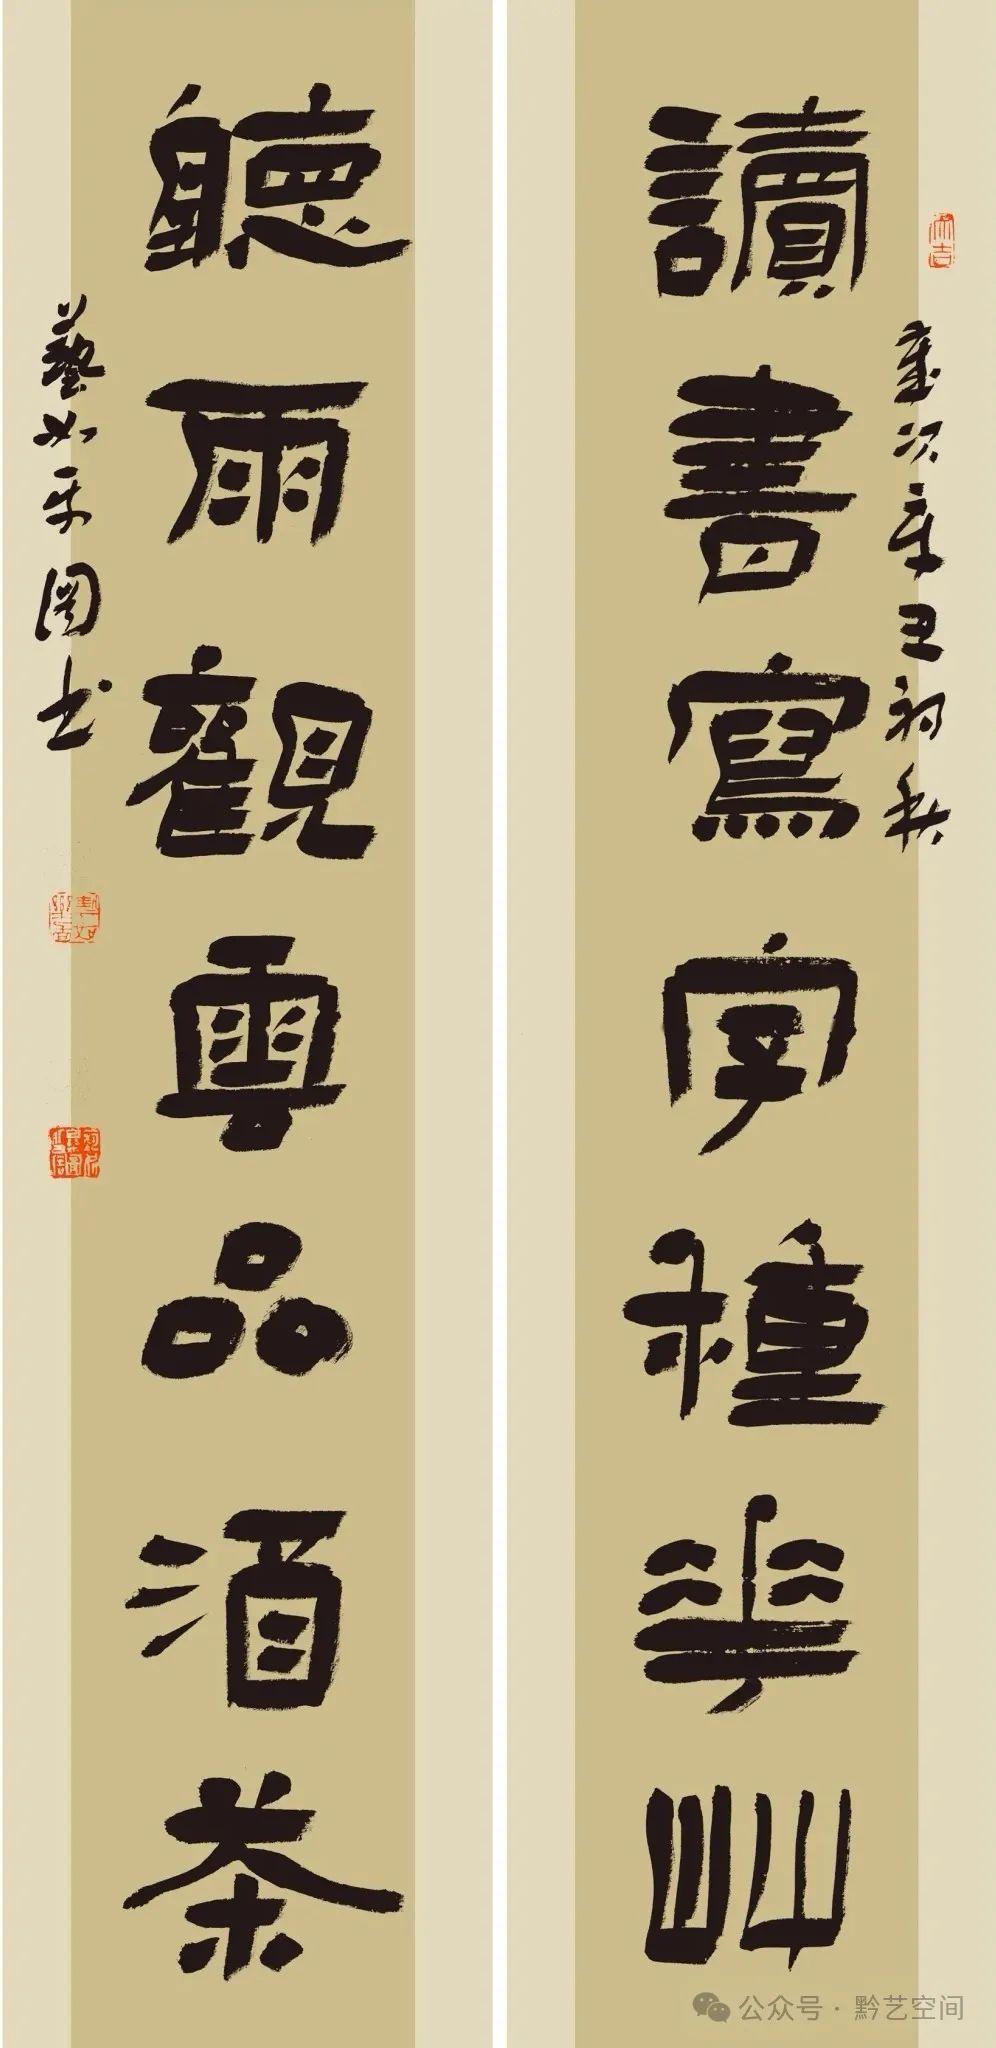 讀書寫字種華艸
歲次辛丑初秋
聽雨觀雲品酒茶
藝如樂園書
大吉
公众号·黔艺空间